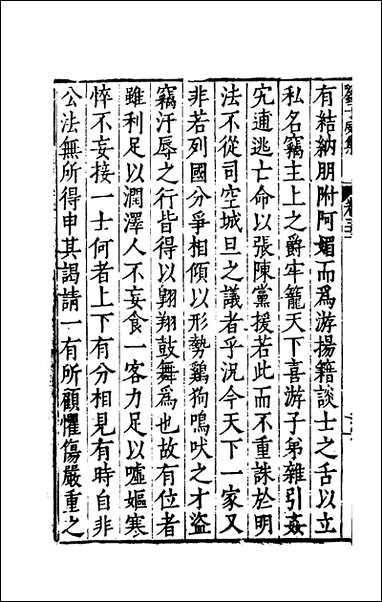 有結納朋附阿媚而爲游揚籍談士之舌以立
私名竊主上之爵牢籠天下喜游子弟雜引姦
宄逋逃亡命以張陳黨援若此而不重誅於明
法不從司空城旦之議者乎況今天下一家又
非若列國分爭相傾以形勢鷄狗鳴吠之才盜
竊汗辱之行皆得以翺翔鼓舞爲也故有位者
雖利足以潤澤人不妄食一客力足以噓嫗寒
悴不妄接一士何者上下有分相見有時自非
公法無所得申其謁請一有所顧懼傷嚴重之